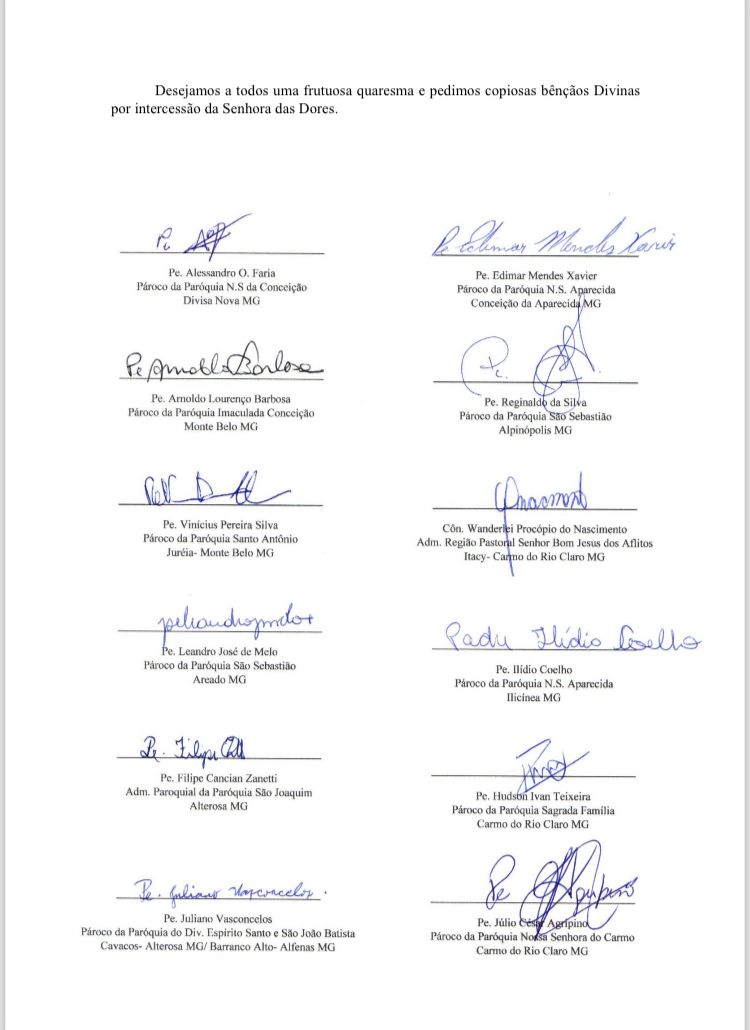 Desejamos a todos uma frutuosa quaresma e pedimos copiosas bênçãos Divinas
por intercessão da Senhora das Dores.
Pe
Pe. Alessandro O. Faria
Pároco da Paróquia N.S da Conceição
Divisa Nova MG
Pe Edimar Mendes Xavier
Pe. Edimar Mendes Xavier
Pároco da Paróquia N.S. Aparecida
Conceição da Aparecida MG
Pe Arnoldo Barbosa
Pe. Arnoldo Lourenço Barbosa
Pároco da Paróquia Imaculada Conceição
Monte Belo MG
Pe.
Pe. Reginaldo da Silva
Pároco da Paróquia São Sebastião
Alpinópolis MG
Pe. Vinícius Pereira Silva
Pároco da Paróquia Santo Antônio
Juréia- Monte Belo MG
Côn. Wanderlei Procópio do Nascimento
Adm. Região Pastoral Senhor Bom Jesus dos Aflitos
Itacy- Carmo do Rio Claro MG
Pe. Leandro José de Melo
Pároco da Paróquia São Sebastião
Areado MG
Padre Ilídio Coelho
Pe. Ilídio Coelho
Pároco da Paróquia N.S. Aparecida
Ilicínea MG
Pe. Filipe
Pe. Filipe Cancian Zanetti
Adm. Paroquial da Paróquia São Joaquim
Alterosa MG
Pe. Hudson Ivan Teixeira
Pároco da Paróquia Sagrada Família
Carmo do Rio Claro MG
Pe. Juliano Vasconcelos.
Pe. Juliano Vasconcelos
Pároco da Paróquia do Div. Espírito Santo e São João Batista
Cavacos- Alterosa MG/ Barranco Alto- Alfenas MG
Pe Agripino
Pe. Júlio César Agripino
Pároco da Paróquia Nossa Senhora do Carmo
Carmo do Rio Claro MG